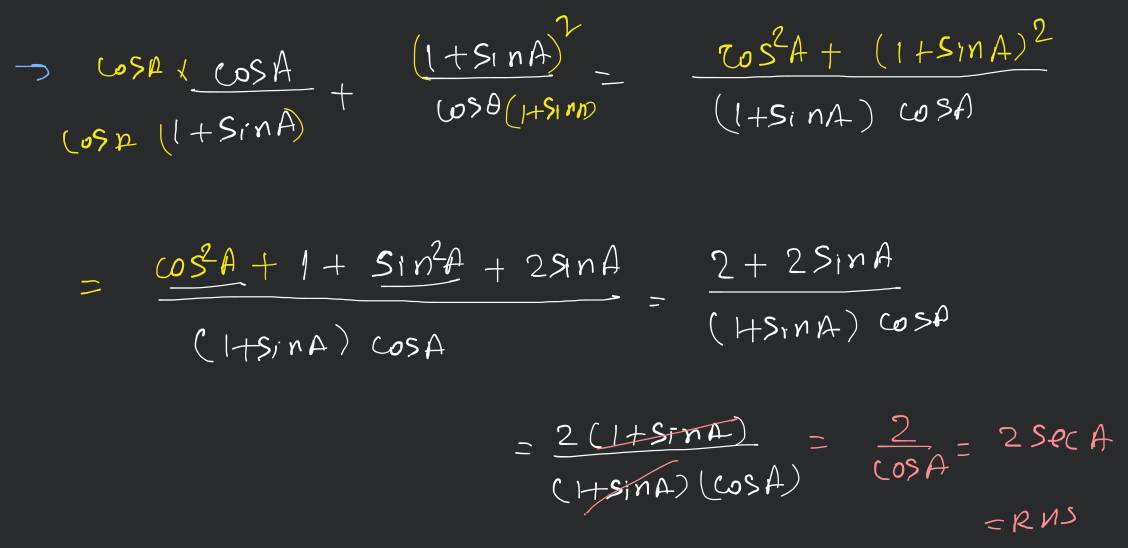 → cosA × cosA / cosA (1+sinA) + (1+sinA)² / cosθ(1+sinA) = cos²A + (1+sinA)² / (1+sinA) cosA
= cos²A + 1 + sin²A + 2sinA / (1+sinA) cosA = 2 + 2sinA / (1+sinA) cosA
= 2(1+sinA) / (1+sinA)(cosA) = 2 / cosA = 2 sec A
= RHS